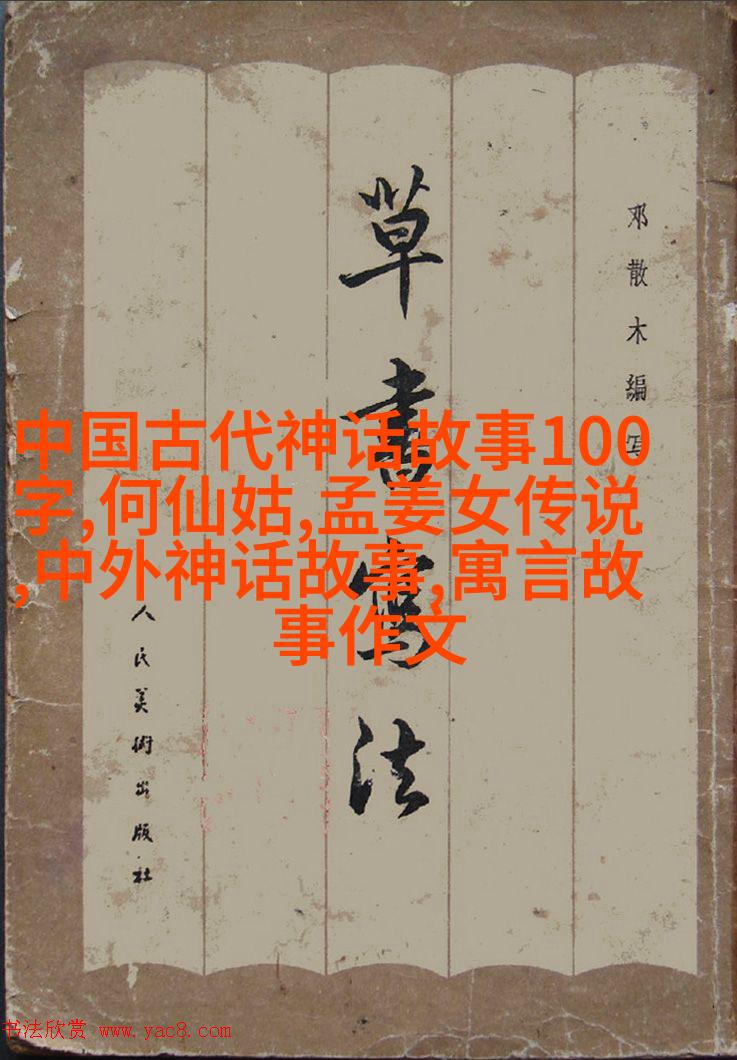 邓散木编写
草书写法
人民美術出版社
中国古代神话故事100
字,何仙姑,孟姜女传说
,中外神话故事,寓言故
事作文
书法欣赏 www.yac8.com